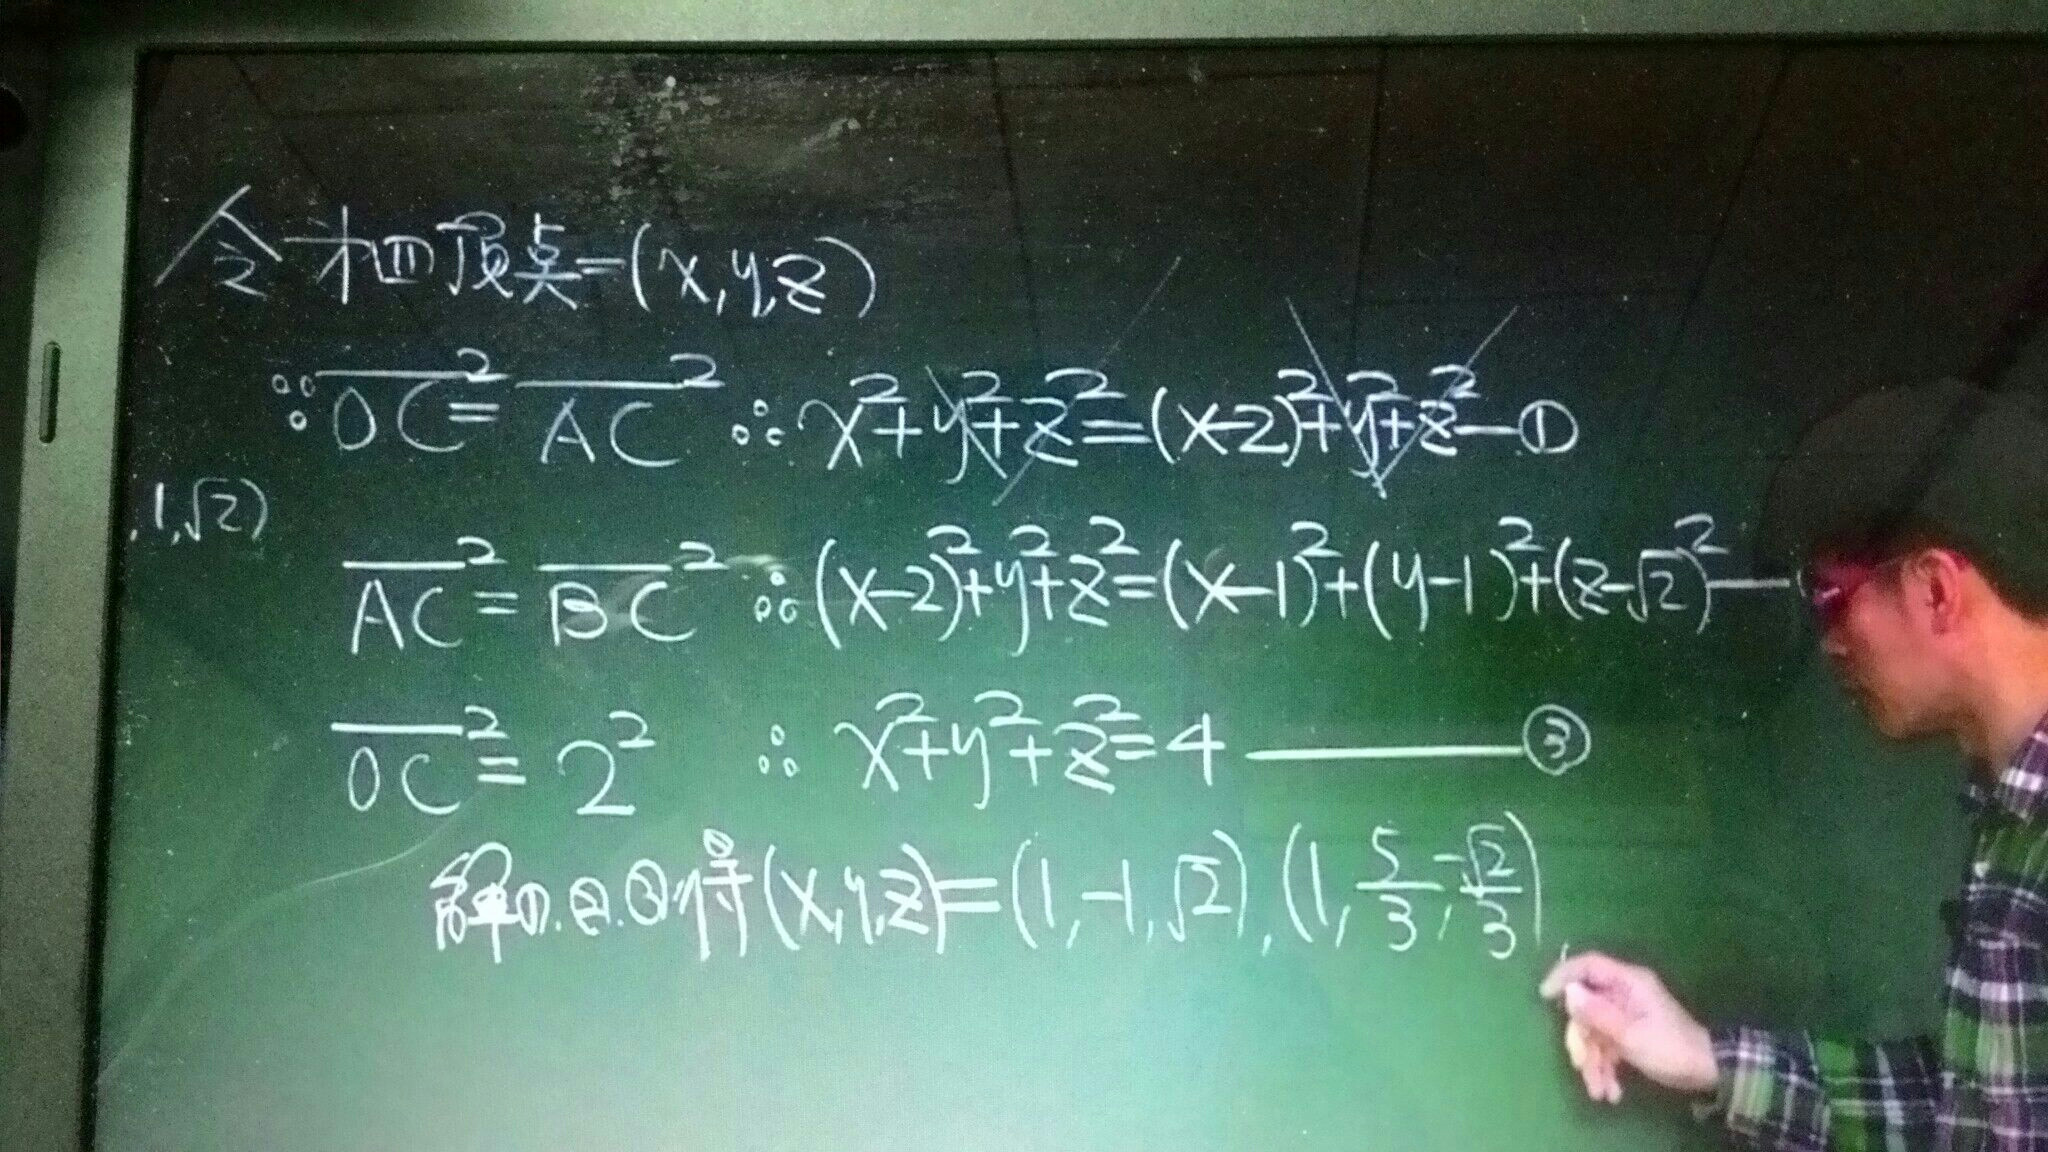 令第四頂点=(x,y,z)
∵OC²=AC² ∴x²+y²+z²=(x-2)²+y²+z²—①
,1,√2)
AC²=BC² ∴(x-2)²+y²+z²=(x-1)²+(y-1)²+(z-√2)²—
OC²=2² ∴x²+y²+z²=4—③
解①.②.③得(x,y,z)=(1,-1,√2),(1,5/3,-√2/3)